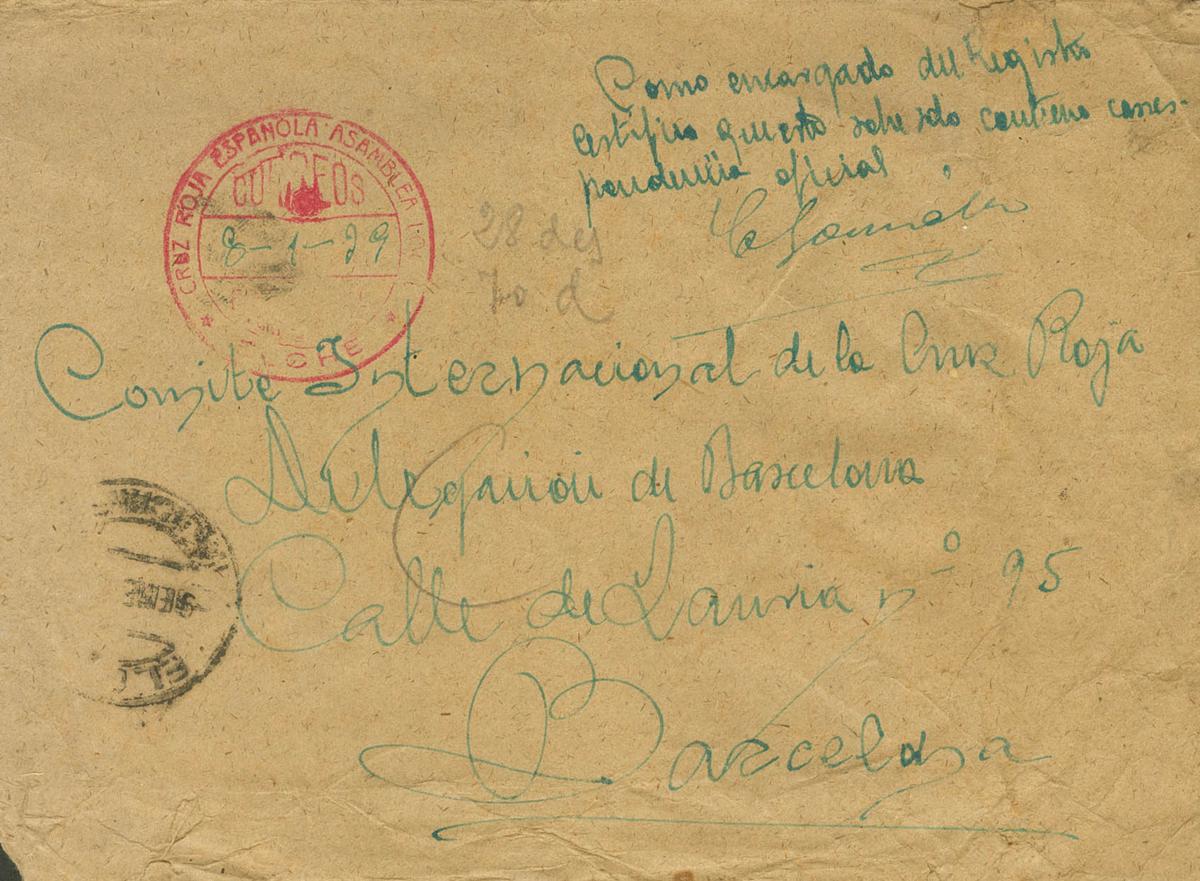 Como encargado del Registro
certifico que esto sobre solo contiene corres-
pondencia oficial
CRUZ ROJA ESPAÑOLA ASAMBLEA
CORREOS
8-1-39
28 des
70 d
Comite Internacional de la Cruz Roja
Delegación de Barcelona
Calle de Lauria nº 95
Barcelona
ENE